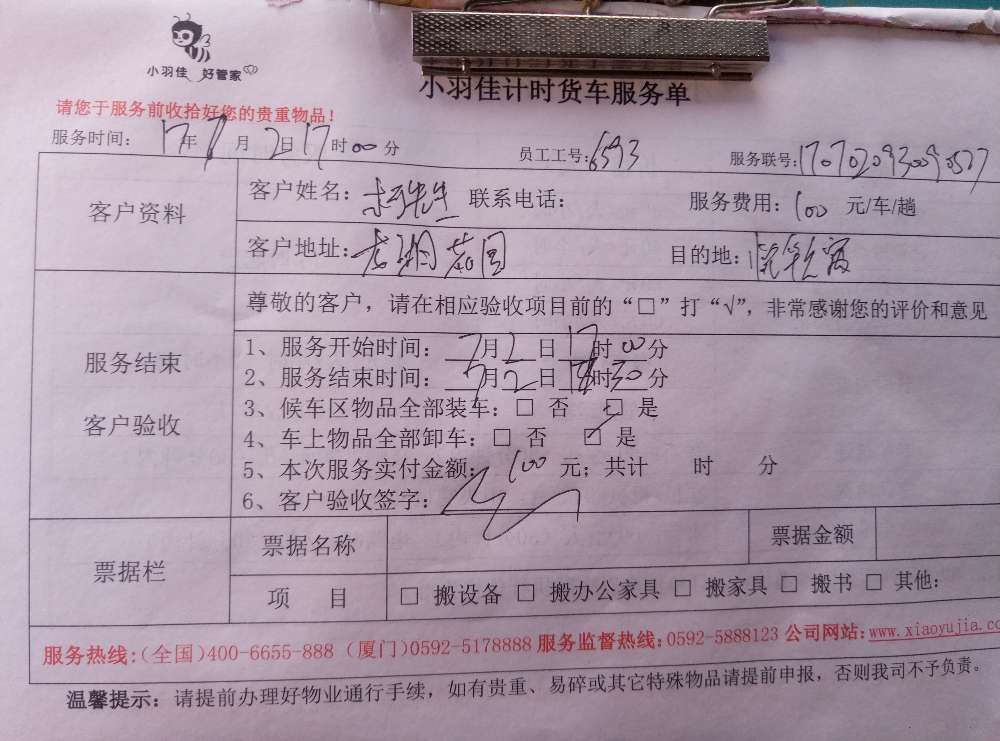 小羽佳 好管家
小羽佳计时货车服务单
请您于服务前收拾好您的贵重物品！
服务时间： 17年7月2日17时00分 员工工号：6593 服务联号：1707020930090527
客户资料
客户姓名： 先生 联系电话： 服务费用：100 元/车/趟
客户地址： 花园 目的地：
尊敬的客户，请在相应验收项目前的“□”打“√”，非常感谢您的评价和意见
服务结束
客户验收
1、服务开始时间：7月2日17时00分
2、服务结束时间：7月2日18时30分
3、候车区物品全部装车：□ 否 ☑ 是
4、车上物品全部卸车：□ 否 ☑ 是
5、本次服务实付金额：100 元；共计 时 分
6、客户验收签字：
票据栏
票据名称 票据金额
项 目 □ 搬设备 □ 搬办公家具 □ 搬家具 □ 搬书 □ 其他：
服务热线：（全国）400-6655-888（厦门）0592-5178888 服务监督热线：0592-5888123 公司网站：www.xiaoyujia.co
温馨提示：请提前办理好物业通行手续，如有贵重、易碎或其它特殊物品请提前申报，否则我司不予负责。